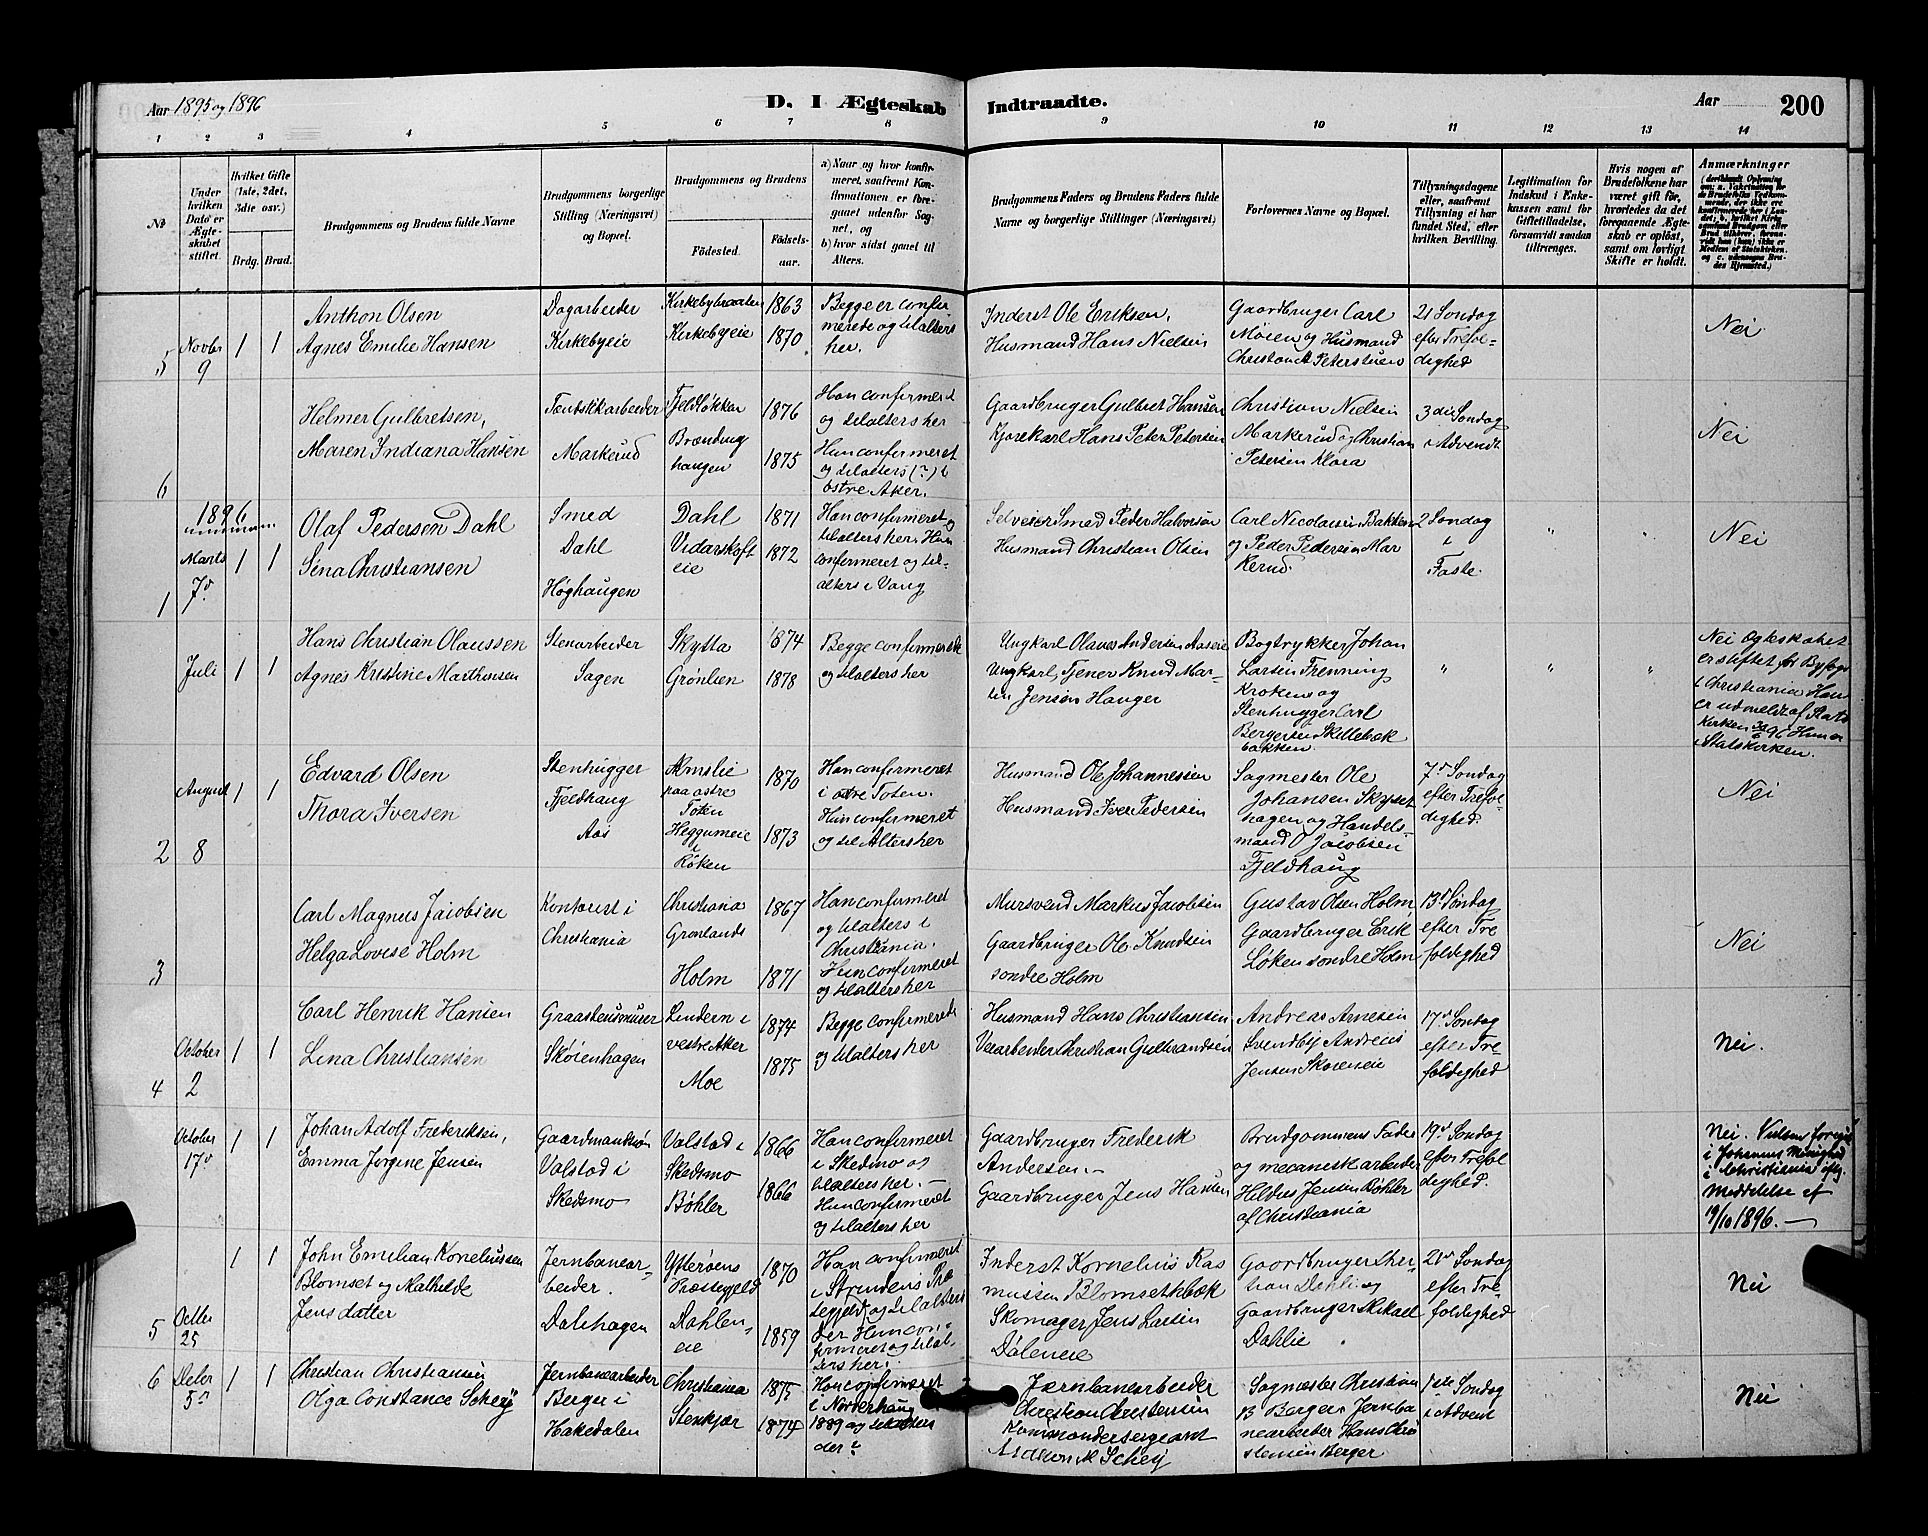 Aar 1895 og 1896
D. I Ægteskab Indtraadte.
Aar 200
1 2 3 4 5 6 7 8 9 10 11 12 13 14
No
Under hvilken Dato er Ægteskabet stiftet.
Hvilket Gifte (1ste, 2det, 3die osv.)
Brdg. Brud.
Brudgommens og Brudens fulde Navne
Brudgommens borgerlige Stilling (Næringsvei) og Bopæl.
Brudgommens og Brudens
Födested. Födselsaar.
a) Naar og hvor konfirmeret, saafremt Konfirmationen er foregaaet udenfor Sognet, og
b) hvor sidst gaaet til Alters.
Brudgommens Faders og Brudens Faders fulde Navne og borgerlige Stillinger (Næringsvei)
Forlovernes Navne og Bopæl.
Tillysningsdagene eller, saafremt Tillysning ei har fundet Sted, efter hvilken Bevilling.
Legitimation for Indskud i Enkekassen samt for Giftetilladelse, forsaavidt saadan tiltrænges.
Hvis nogen af Brudefolkene har været gift för, hvorledes da det foregaaende Ægteskab er oplöst, samt om lovligt Skifte er holdt.
Anmærkninger
5
Novbr
9
1 1
Anthon Olsen
Agnes Emilie Hansen
Dagarbeider
Kirkebyeie
Kirkebybraaten
Kirkebyeie
1863
1870
Begge er confirmerede og tilalters her.
Inderst Ole Eriksen,
Husmand Hans Nielsen
Gaardbruger Carl
Mosen og Husmand
Christian A Peterstuen
21 Søndag
efter Trefoldighed
Nei
6
Helmer Gulbretsen,
Maren Indiana Hansen
Markerud
Fjeldløkken
Brændinghaugen
1876
1875
Han confirmeret
og tilalters her
Hun confirmeret
og tilalters (?) i
østre Aker.
Gaardbruger Gulbret Hansen
Kjørekarl Hans Peter Petersen
Christian Nielsen
Markerud og Christian
Petersen Klora
3die Søndag
i Advendt
Nei
1896
1
Marts
7de
1 1
Olaf Pedersen Dahl
Sina Christiansen
Smed
Dahl
Høghaugen
Dahl
Vidarskoft
eie
1871
1872
Han confirmeret og
tilalters her. Hun
confirmeret og til-
alters i Vang
Selveier Smed Peder Halvorsen
Husmand Christian Olsen
Carl Nicolaisen Bakken
og Peder Pedersen Mar
kerud.
2 Søndag
i
Faste.
Nei
Juli
1 1
Hans Christian Olaussen
Agnes Kristine Marthinsen
Stenarbeider
Sagen
Skytta
Grønlien
1874
1878
Begge confirmerede
og tilalters her
Ungkarl Olaves Andersen Aaseie
Ungkarl, Tjener Knud Mar-
tin Jensen Hauger
Bogtrykker Johan
Larsen Trenning
Kroken og
Stenhugger Carl
Bergersen Skillebæk
bakken.
Nei Ægteskabet
er stiftet for Byfogd
i Christiania Han
er udmeldt af Stats
kirken 96 Hun er
i Statskirken.
2
August
8
1 1
Edvard Olsen
Thora Iversen
Stenhugger
Fjeldhaug
Aas
paa østre
Toten
Heggumeie
i
Røken
1870
1873
Han confirmeret
i østre Toten.
Hun confirmeret
og til Alters her
Husmand Ole Johannessen
Husmand Iver Pedersen
Sagmester Ole
Johansen Skyset
hagen og Handels-
mand O Jacobsen
Fjeldhaug
7de Søndag
efter Trefol-
dighed.
Nei
3
Carl Magnus Jacobsen
Helga Lovise Holm
Kontorist i
Christiania
Christiania
Grønlands
Holm
1867
1871
Han confirmeret
og tilalters i
Christiania.
Hun confirmeret
og tilalters her
Mursvend Markus Jacobsen
Gaardbruger Ole Knudsen
søndre Holm
Gustav Olsen Holm
Gaardbruger Erik
Løken søndre Holm
13de Søndag
efter Tre
foldighed
Nei
4
October
2
1 1
Carl Henrik Hansen
Lina Christiansen
Graastensmurer
Skøienhagen
Lindern i
vestre Aker
Moe
1874
1875
Begge confirmerede
og tilalters her
Husmand Hans Christiansen
Veiarbeider Christian Gulbrandsen
Andreas Arnesen
Svendby Andreas
Jensen Skøieneie
17de Søndag
efter Tre-
foldighed
Nei.
October
17de
1 1
Johan Adolf Frederiksen,
Emma Jørgine Jensen
Gaardmandssøn
Valstad i
Skedsmo
Valstad i
Skedsmo
Bøhler
1866
1866
Han confirmeret
i Skedsmo og
tilalters her. –
Hun confirmeret
og tilalters her
Gaardbruger Frederik
Andersen.–
Gaardbruger Jens Hansen
Brudgommens Fader
og mecanisk arbeider
Hildus Jensen Bøhler
af Christiania
19de Søndag
efter Trefol
dighed.
Nei. Vielsen foregik
i Johannes Menighed
i Christiania iflg.
Meddelelse af
19/10 1896. —
5
Octbr
25
1 1
John Emilian Korneliussen
Blomset og Mathilde
Jensdatter
Jernbanear-
beider.
Dalehagen
Ytterøens
Præstegjeld
Dahlen-
eie
1870
1859
Han confirmeret
i Strindens Præ
stegjeld og tilalters
der Hun con-
firmeret og tilal-
ters her.
Inderst Kornelius Ras
mussen Blomsetbæk
Skomager Jens Larsen
Daleneie
Gaardbruger Chri-
stian Dahli og
Gaardbruger Mikael
Dahlie
21de Søndag
efter Tre
foldighed
Nei
6
Decbr
5te
1 1
Christian Christiansen
Olga Constance Schey
Jernbanearbeider
Berger i
Hakedalen
Christiania
Stenkjær
1875
1874
Han confirmeret
i Norderhaug
1889 og tilalters
der?
Jernbanearbeider
Christian Christensen
Kommandersergeant
M Schey
Sagmester Christian
B Berger Jernba
nearbeider Hans Chri
stensen Berger
1ste Søndag
i Advent
Nei